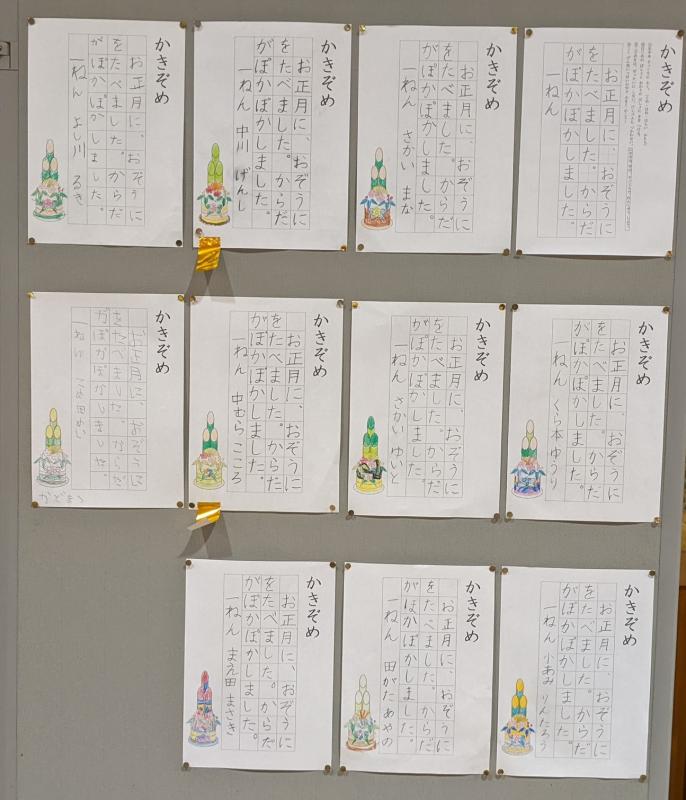 かきぞめ
お正月に、おぞうに
をたべました。からだ
がぽかぽかしました。
一ねん
かきぞめ
お正月に、おぞうに
をたべました。からだ
がぽかぽかしました。
一ねん さかい まな
かきぞめ
お正月に、おぞうに
をたべました。からだ
がぽかぽかしました。
一ねん 中川 げんし
かきぞめ
お正月に、おぞうに
をたべました。からだ
がぽかぽかしました。
一ねん よし川 るき
かきぞめ
お正月に、おぞうに
をたべました。からだ
がぽかぽかしました。
一ねん くら本 ゆうり
かきぞめ
お正月に、おぞうに
をたべました。からだ
がぽかぽかしました。
一ねん さかい ゆいと
かきぞめ
お正月に、おぞうに
をたべました。からだ
がぽかぽかしました。
一ねん 中むら こころ
かきぞめ
お正月に、おぞうに
をたべました。からだ
がぽかぽかしました
一ねん
かどまつ
かきぞめ
お正月に、おぞうに
をたべました。からだ
がぽかぽかしました。
一ねん 小あみ
かきぞめ
お正月に、おぞうに
をたべました。からだ
がぽかぽかしました。
一ねん 田がた あやの
かきぞめ
お正月に、おぞうに
をたべました。からだ
がぽかぽかしました。
一ねん まえ田 まさき